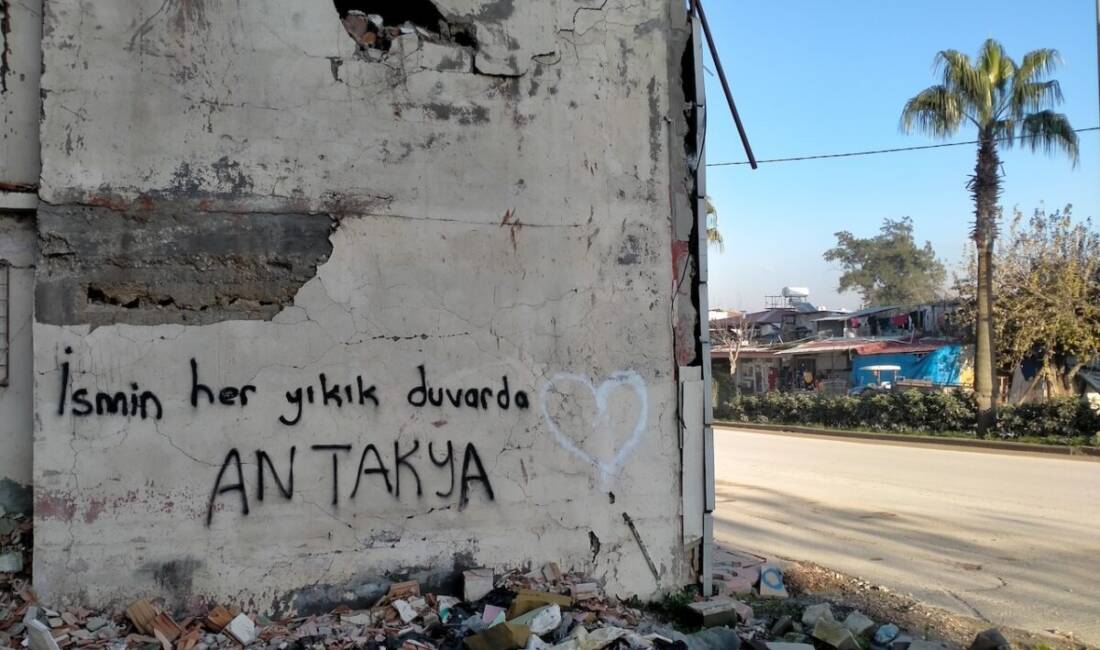 İsmin her yıkık duvarda
ANTAKYA